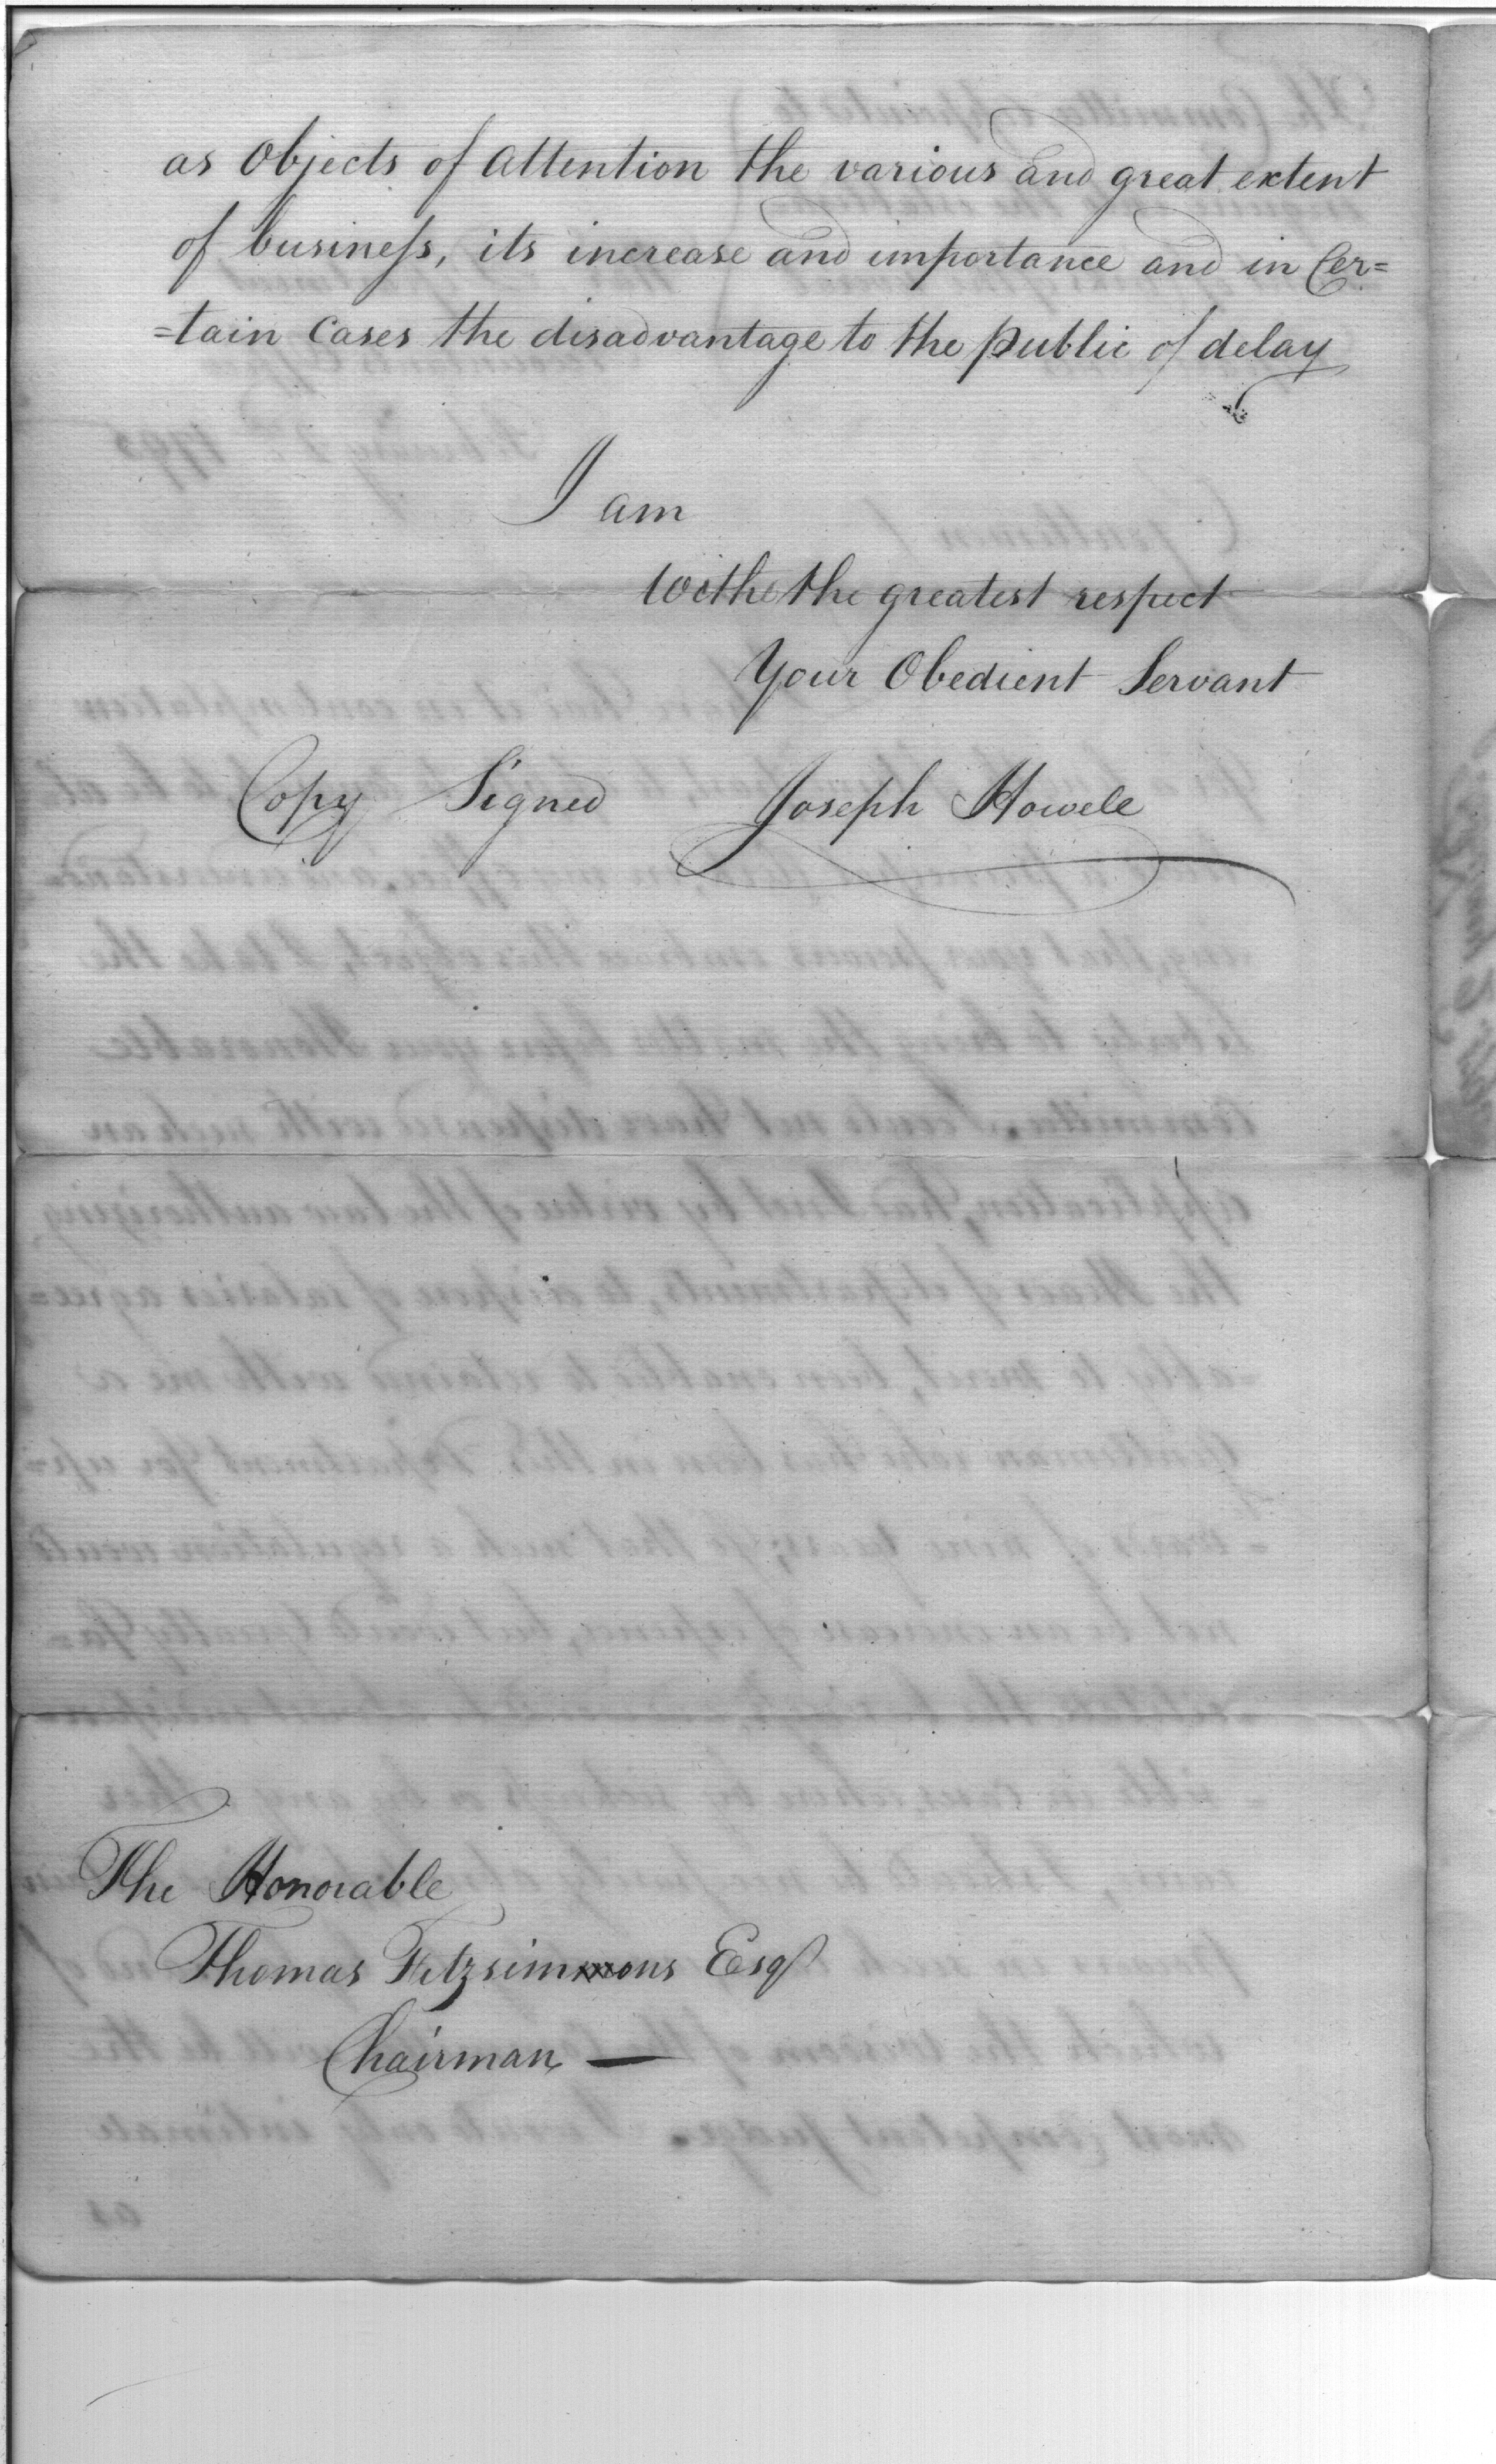 as Objects of Attention the various and great extent
of business, its increase and importance and in Cer=
=tain Cases the disadvantage to the public of delay
I am
with the greatest respect
Your Obedient Servant
Copy Signed Joseph Howell
The Honorable
Thomas Fitzsimons Esqr
Chairman —